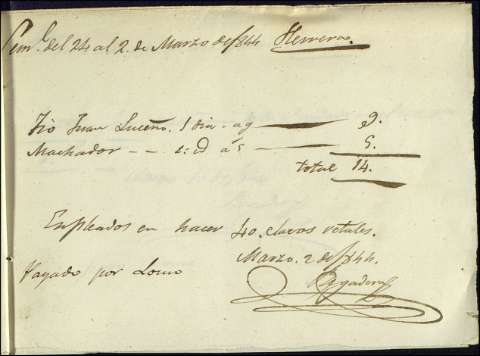 Semª. del 24 al 2. de Marzo de 1844 Herreros
Tio Juan Luceño. 1 dia. a 9 9.
Machador - - 1: id a 5 5.
total 14.
Enpleados en hacer 40. clavos
Marzo. 2 de 1844.
Pagado por